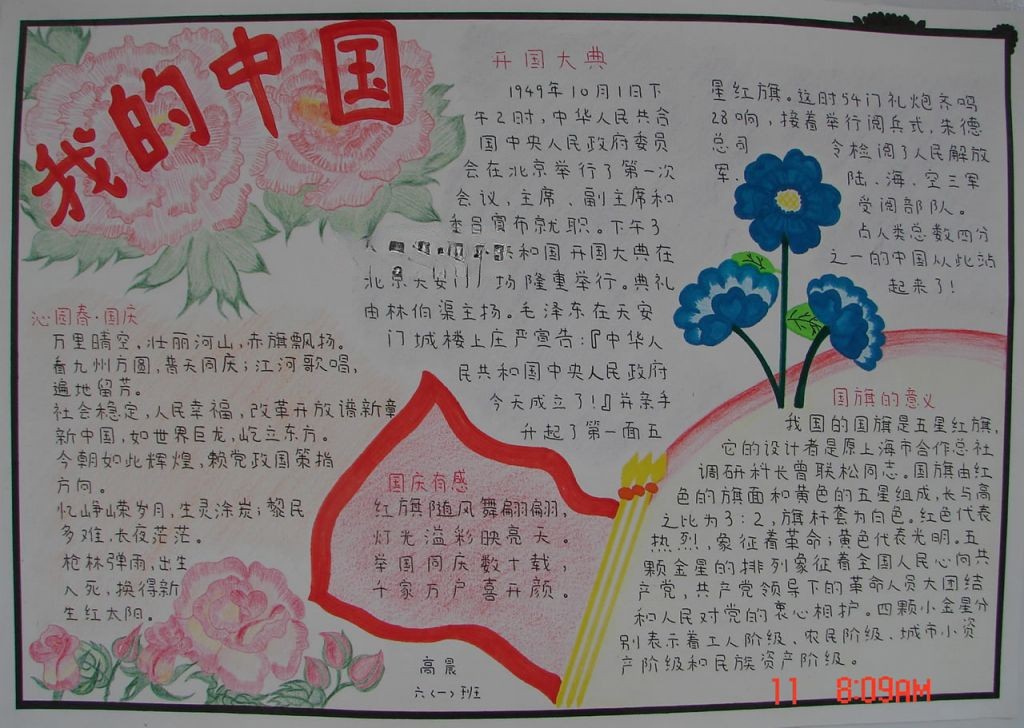 我的中国
开国大典
1949年10月1日下
午2时，中华人民共合
国中央人民政府委员
会在北京举行了第一次
会议，主席、副主席和
委员宣布就职。下午3
和国开国大典在
北京天安门 场隆重举行。典礼
由林伯渠主扬。毛泽东在天安
门城楼上庄严宣告：『中华人
民共和国中央人民政府
今天成立了！』并亲手
升起了第一面五
星红旗。这时54门礼炮齐鸣
28响，接着举行阅兵式，朱德
总司令检阅了人民解放
军、陆、海、空三军
受阅部队。
占人类总数四分
之一的中国从此站
起来了！
沁园春·国庆
万里晴空，壮丽河山，赤旗飘扬。
看九州方圆，普天同庆；江河歌唱，
遍地留芳。
社会稳定，人民幸福，改革开放谱新章
新中国，如世界巨龙，屹立东方。
今朝如此辉煌，赖党政国策指
方向。
忆峥嵘岁月，生灵涂炭；黎民
多难，长夜茫茫。
枪林弹雨，出生
入死，换得新
生红太阳。
国庆有感
红旗随风舞翩翩，
灯光溢彩映亮天。
举国同庆数十载，
千家万户喜开颜。
国旗的意义
我国的国旗是五星红旗，
它的设计者是原上海市合作总社
调研科长曾联松同志。国旗由红
色的旗面和黄色的五星组成，长与高
之比为3：2，旗杆套为白色。红色代表
热烈，象征着革命；黄色代表光明。五
颗金星的排列象征着全国人民心向共
产党，共产党领导下的革命人员大团结
和人民对党的衷心相护。四颗小金星分
别表示着工人阶级、农民阶级、城市小资
产阶级和民族资产阶级。
高晨
六〈一〉班
11 8:09AM